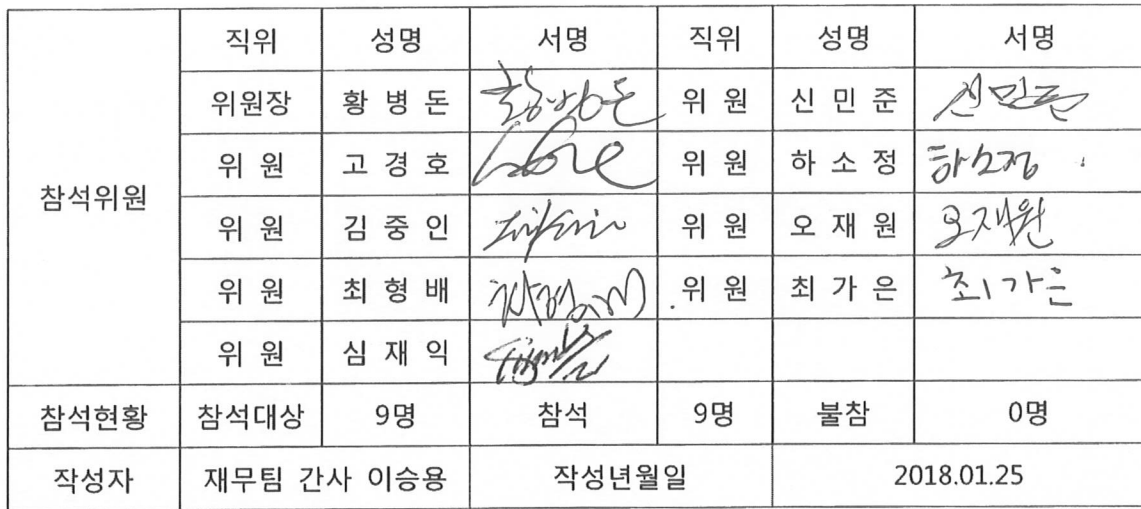 직위 성명 서명 직위 성명 서명
위원장 황 병 돈 황병돈 위 원 신 민 준 신민준
위 원 고 경 호 위 원 하 소 정 하소정
참석위원
위 원 김 중 인 위 원 오 재 원 오재원
위 원 최 형 배 위 원 최 가 은 최가은
위 원 심 재 익
참석현황 참석대상 9명 참석 9명 불참 0명
작성자 재무팀 간사 이승용 작성년월일 2018.01.25